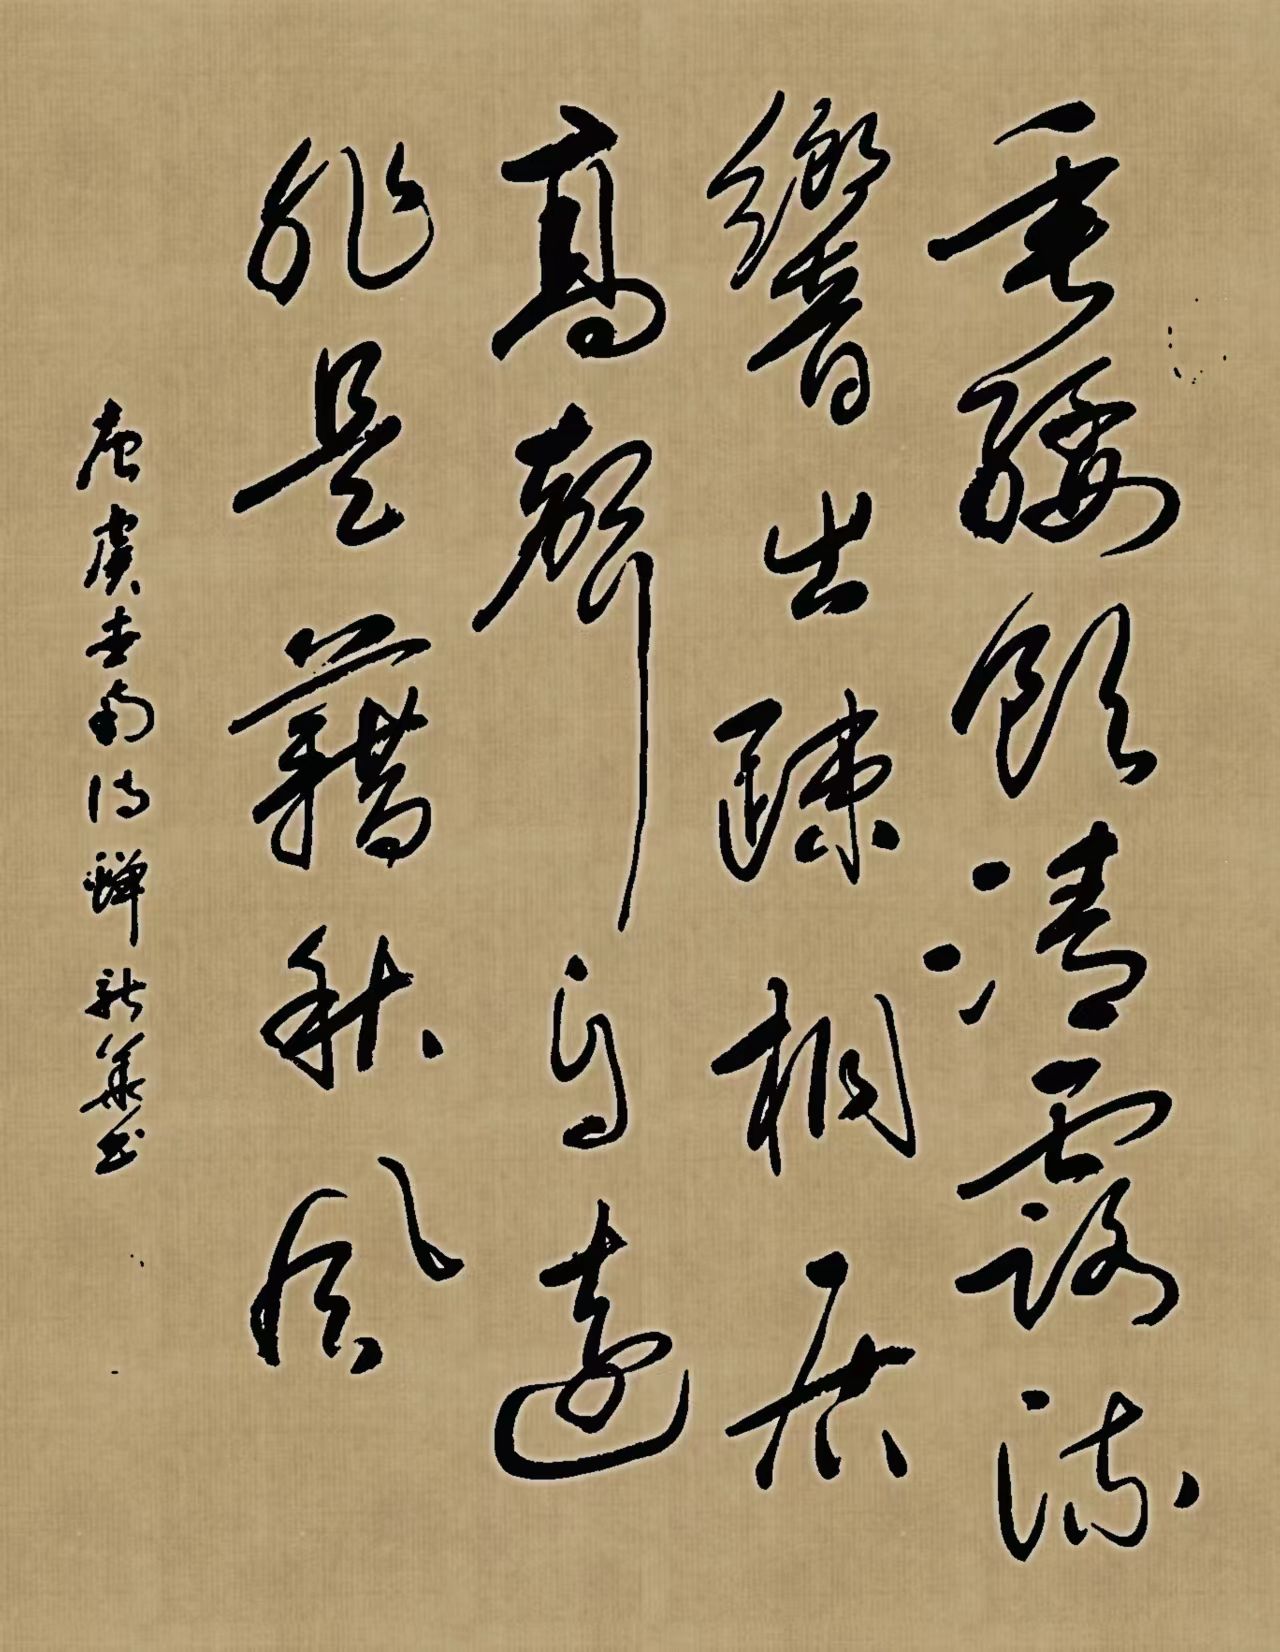 垂緌飲清露流
響出疎桐居
高聲自遠
非是藉秋風
唐虞世南詩蟬新華书